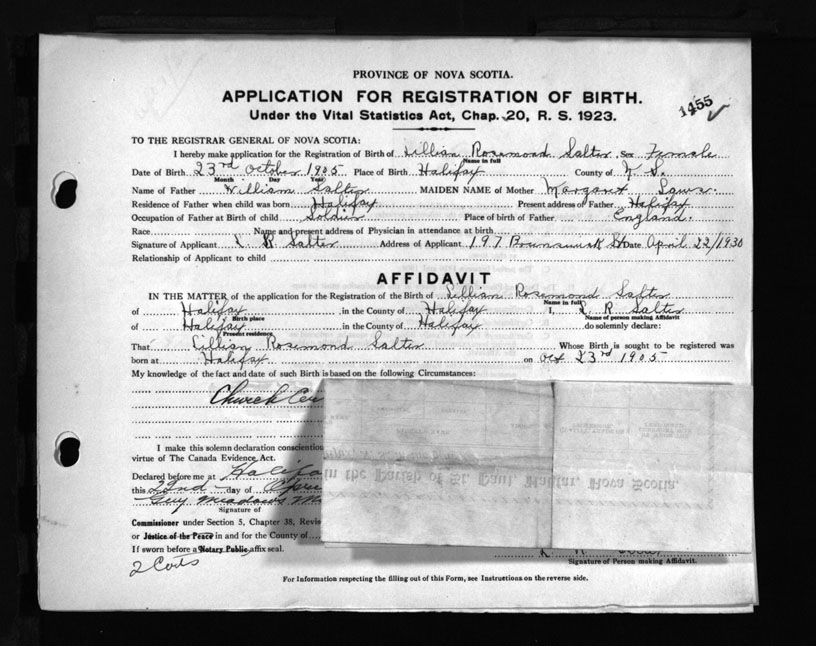 PROVINCE OF NOVA SCOTIA.
APPLICATION FOR REGISTRATION OF BIRTH.
1455
Under the Vital Statistics Act, Chap. 20, R. S. 1923.
TO THE REGISTRAR GENERAL OF NOVA SCOTIA:
I hereby make application for the Registration of Birth of Lillian Rosemond Salter Sex Female
Name in full
Date of Birth 23rd October 1905 Place of Birth Halifax County of N S.
Month Day Year
Name of Father William Salter MAIDEN NAME of Mother Margaret
Residence of Father when child was born Halifax Present address of Father Halifax
Occupation of Father at Birth of child Soldier Place of birth of Father England.
Race Name and present address of Physician in attendance at birth
Signature of Applicant L R Salter Address of Applicant 197 Brunswick St Date April 22/1930
Relationship of Applicant to child
AFFIDAVIT
IN THE MATTER of the application for the Registration of the Birth of Lillian Rosemond Salter
Name in full
of Halifax in the County of Halifax I, L R Salter
Birth place Name of person making Affidavit
of Halifax in the County of Halifax do solemnly declare:
Present residence
That Lillian Rosemond Salter Whose Birth is sought to be registered was
born at Halifax on Oct 23rd 1905
My knowledge of the fact and date of such Birth is based on the following Circumstances:
Church Cer
I make this solemn declaration conscientious
virtue of The Canada Evidence Act.
Declared before me at Halifa
this 22nd day of Apri
Guy Meadows
Signature of
Commissioner under Section 5, Chapter 38, Revis
or Justice of the Peace in and for the County of
If sworn before a Notary Public, affix seal.
in the Parish of St. Paul Halifax, Nova Scotia.
Signature of Person making Affidavit.
For Information respecting the filling out of this Form, see Instructions on the reverse side.